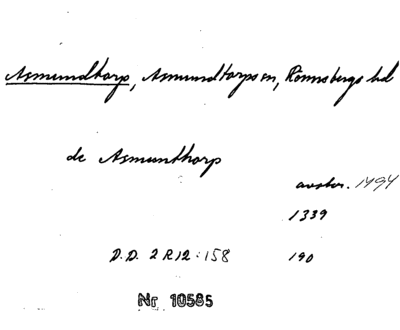 Asmundtorp, Asmundtorps sn, Rönnebergs hd
de Asmunthorp
avskr. 1494
1339
D.D. 2 R 12:158 190
Nr 10585